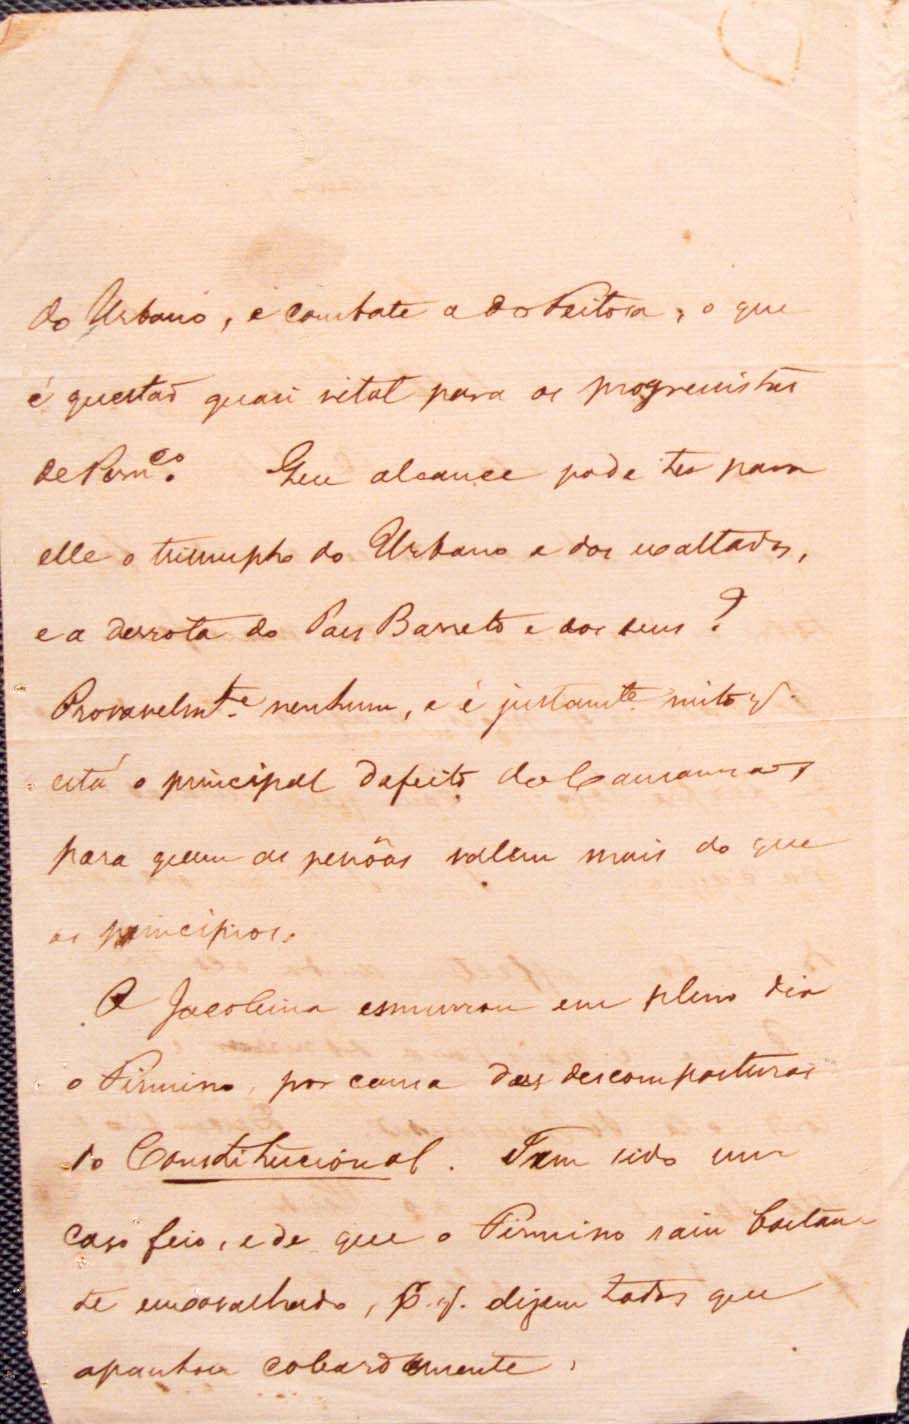 do Urbano, e combate a do Feitosa, o que
é questaõ quasi vital para os progressistas
de Pern.co. Que alcance pode ter para
elle o triumpho do Urbano e dos exaltados,
e a derrota do Paes Barreto e dos seus?
Provavelmt.e nenhum, e é justamte. nisto q.
está o principal defeito do Camaragibe,
para quem as pessôas valem mais do que
os principios.
O Jacobina esmurrou em pleno dia
o Firmino, por causa das descomposturas
do Constitucional. Tem sido um
caso feio, e de que o Firmino saiu bastan-
te enxovalhado, p.q. dizem todos que
apanhou cobardemente.